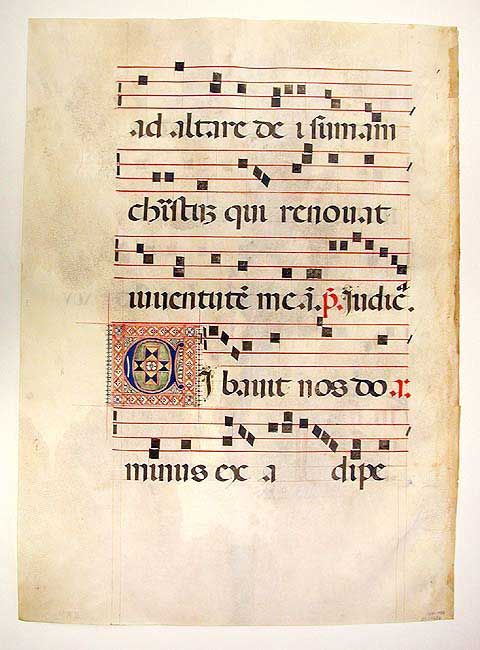 ad altare dei sumam
chr̄istū qui renouat
iuuentutē meā. p̄. Judic̄a.
Cibauit nos do a.
minus ex adipe